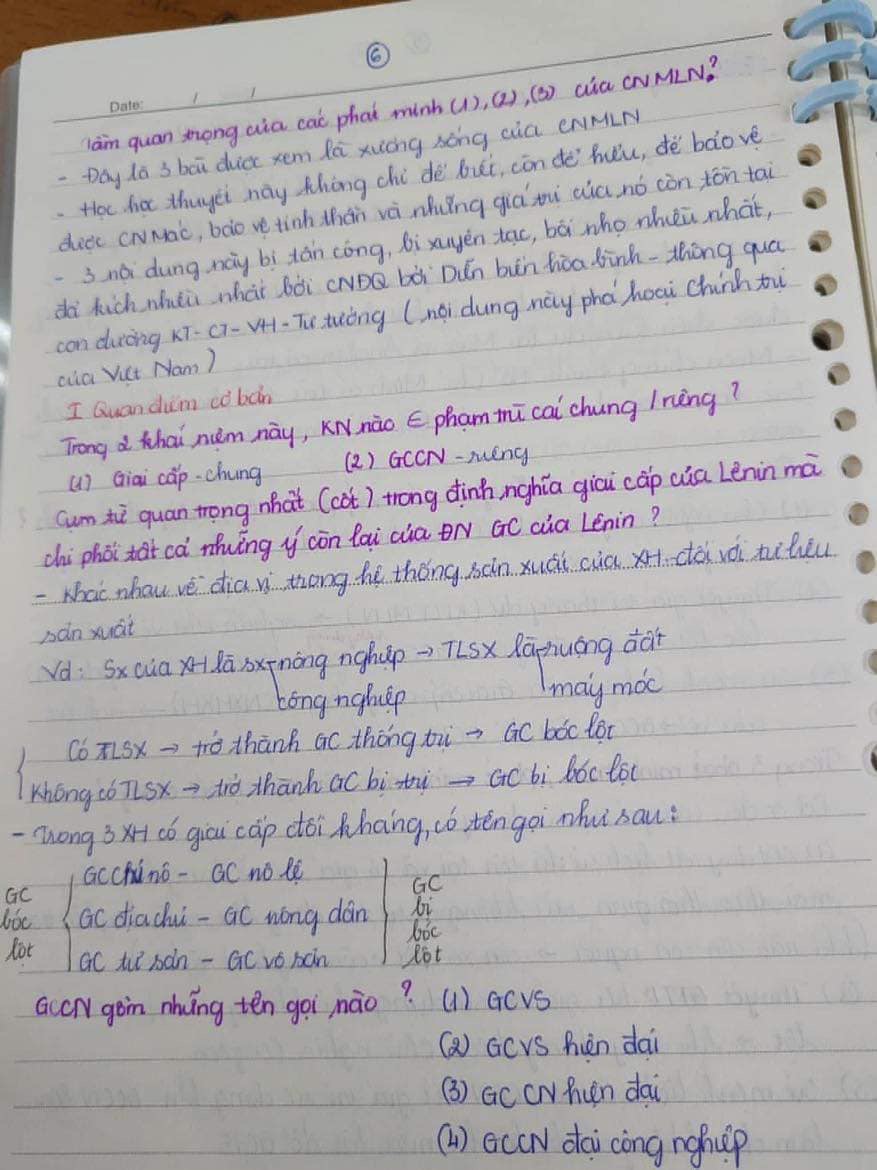 6
Date: / /
Tầm quan trọng của các phát minh (1), (2), (3) của CNMLN?
- Đây là 3 bài được xem là xương sống của CNMLN
- Học học thuyết này không chỉ để biết, còn để hiểu, để bảo vệ
được CN Mác, bảo vệ tinh thần và những giá trị của nó còn tồn tại
- 3 nội dung này bị tấn công, bị xuyên tạc, bôi nhọ nhiều nhất,
đả kích nhiều nhất bởi CNĐQ bởi Diễn biến hòa bình - thông qua
con đường KT - CT - VH - Tư tưởng ( nội dung này phá hoại Chính trị
của Việt Nam )
I Quan điểm cơ bản
Trong 2 khái niệm này, KN nào ∈ phạm trù cái chung / riêng ?
(1) Giai cấp - chung (2) GCCN - riêng
Cụm từ quan trọng nhất (cốt) trong định nghĩa giai cấp của Lênin mà
chi phối tất cả những ý còn lại của ĐN GC của Lênin ?
- Khác nhau về địa vị trong hệ thống sản xuất của XH đối với tư liệu
sản xuất
Vd: Sx của XH là sx nông nghiệp → TLSX là ruộng đất
công nghiệp máy móc
Có TLSX → trở thành GC thống trị → GC bóc lột
Không có TLSX → trở thành GC bị trị → GC bị bóc lột
- Trong 3 XH có giai cấp đối kháng, có tên gọi như sau:
GC bóc lột
GC chủ nô - GC nô lệ
GC địa chủ - GC nông dân
GC tư sản - GC vô sản
GC bị bóc lột
GCCN gồm những tên gọi nào ? (1) GCVS
(2) GCVS hiện đại
(3) GC CN hiện đại
(4) GCCN đại công nghiệp